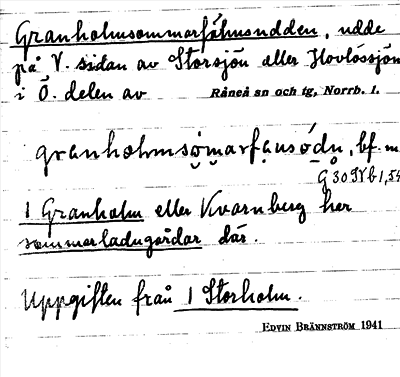 Granholmsommarfähusudden, udde
på V. sidan av Storsjön eller Hovlössjön
i Ö. delen av Råneå sn och tg, Norrb. l.
granholmsomarfausódn, bf. m
G 30 Nb 1,54
1 Granholm eller Kvarnberg har
sommarladugårdar där.
Uppgiften från 1 Storholm.
EDVIN BRÄNNSTRÖM 1941